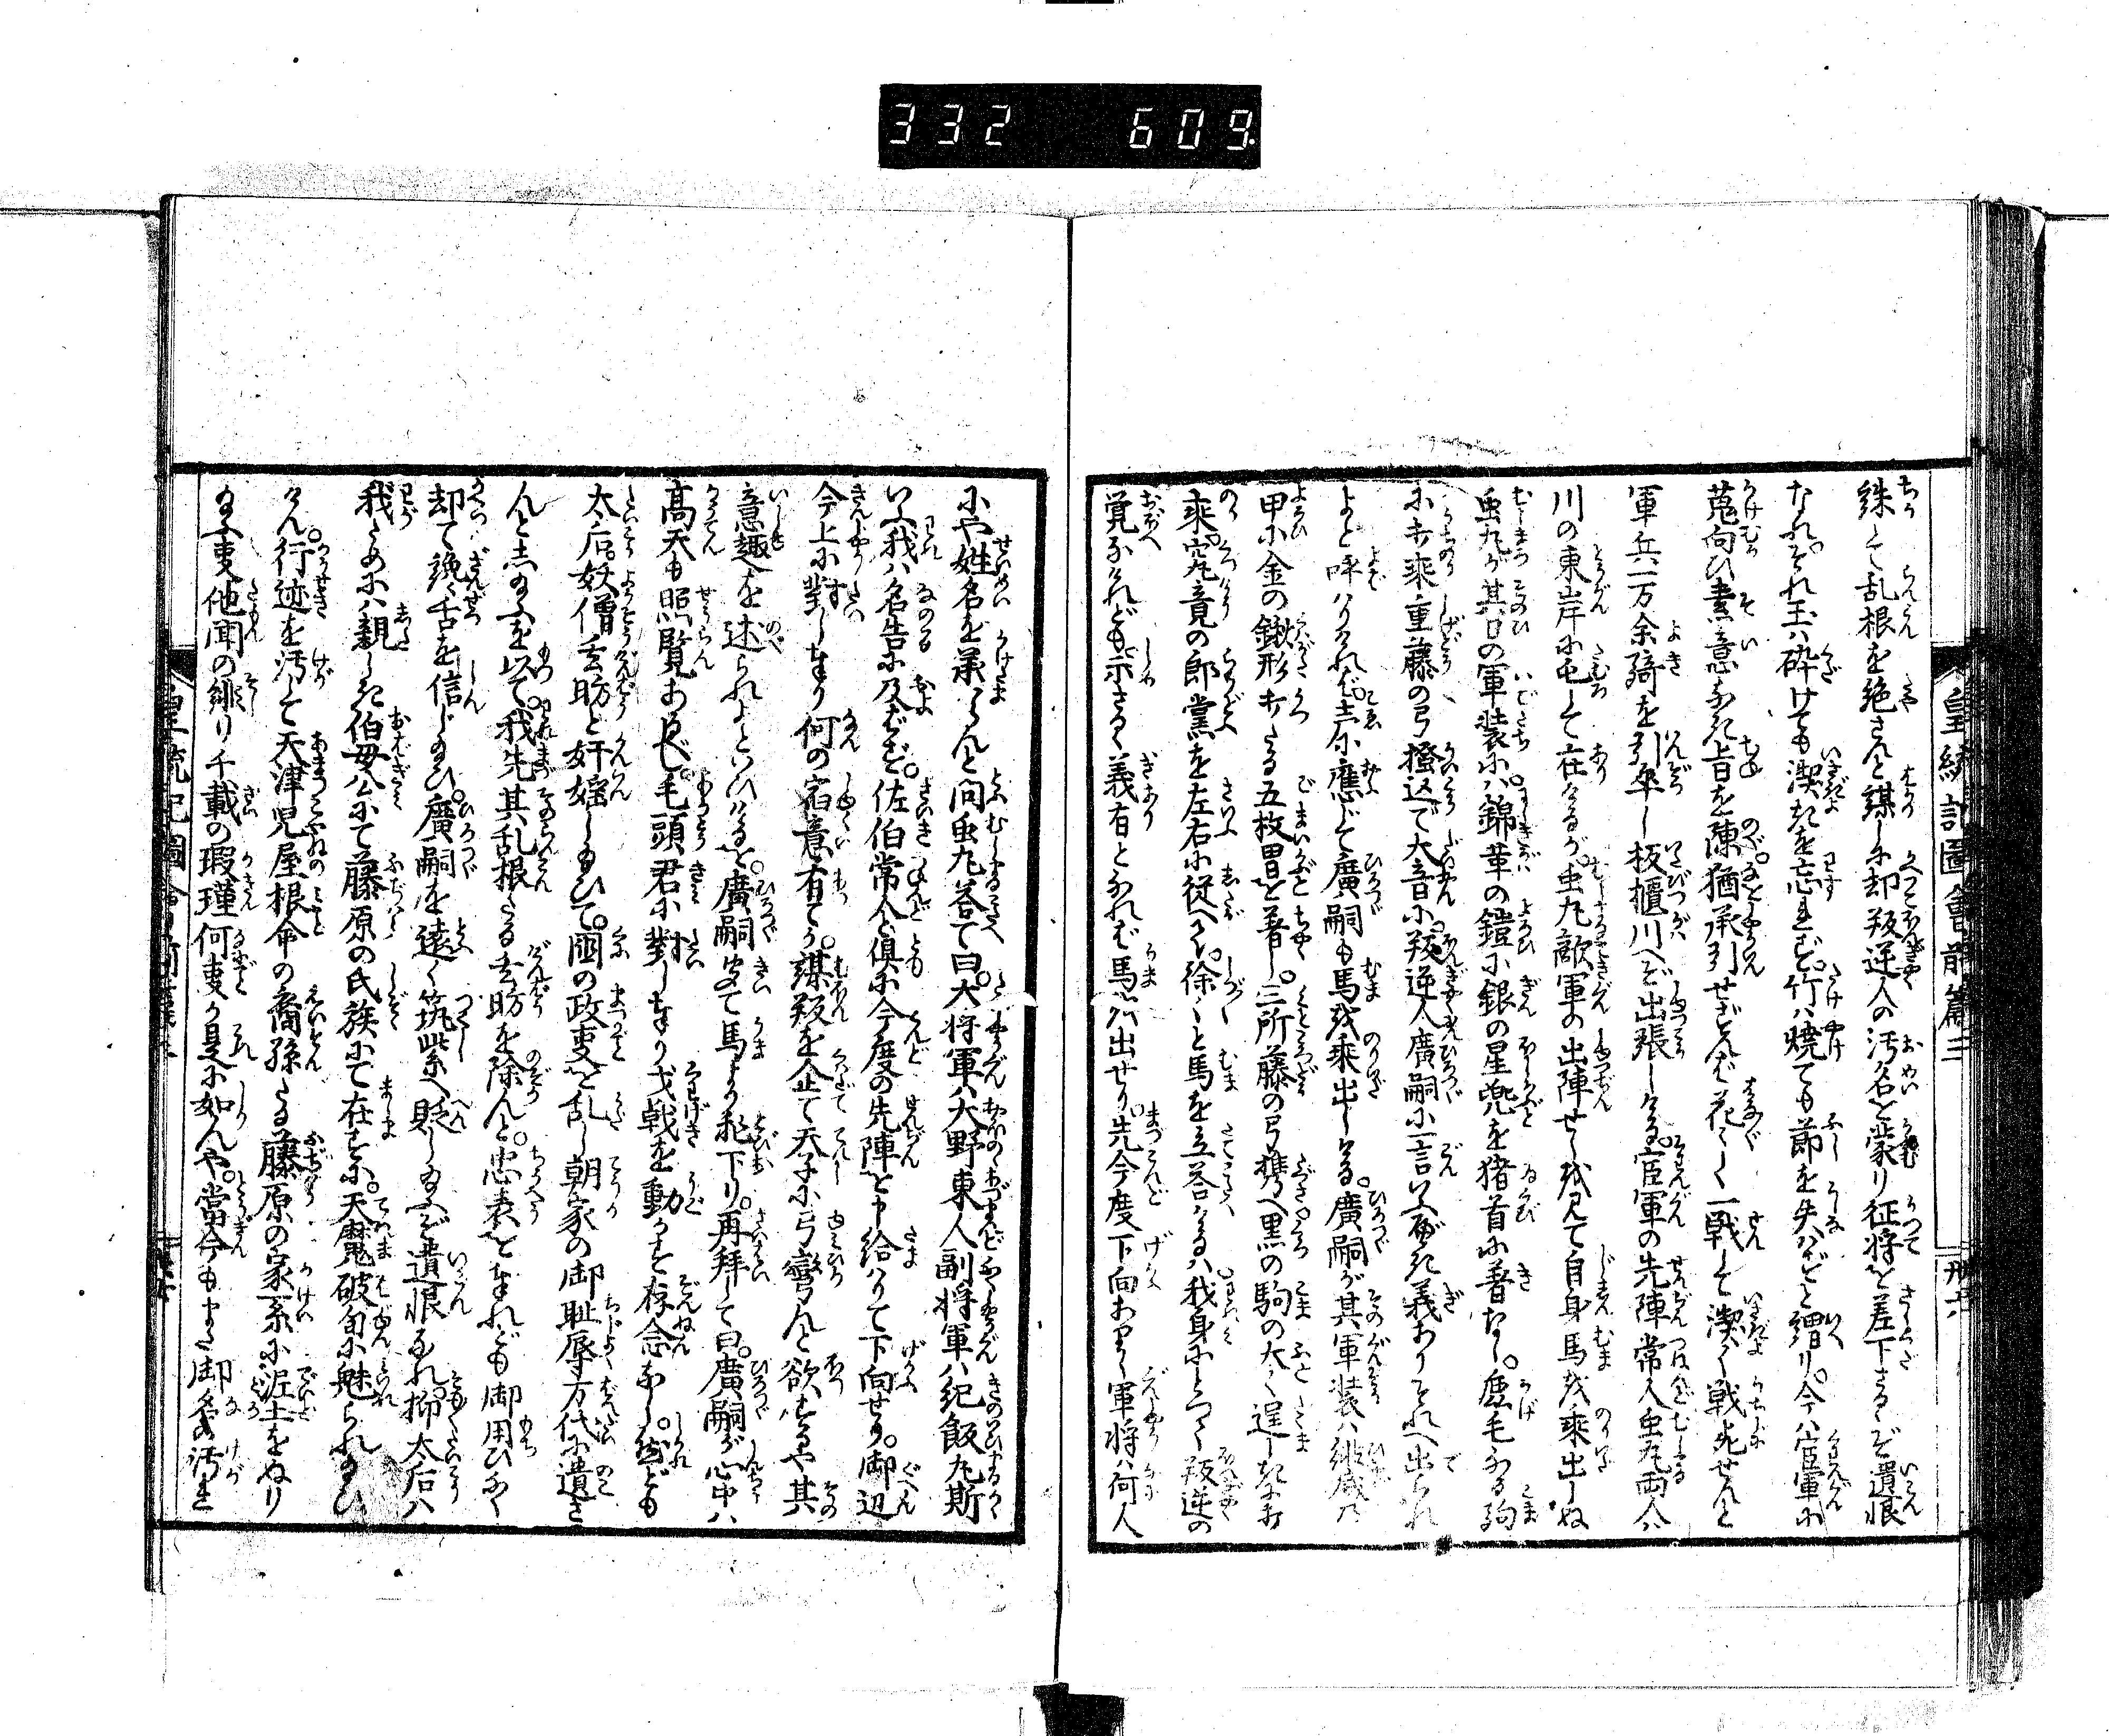 332 609.
皇統記圖會前篇三
誅して乱根を絶さんと謀しに却て叛逆人の汚名を蒙り征将を差下さるゝぞ遺恨
なれ。それ玉ハ砕けても潔きを忘れず。竹ハ焼ても節を失ハずと謂り。今ハ官軍に
蒐向ひ素意なき旨を陳。猶承引せずんば花々しく一戦して潔く戦死せんと
軍兵一万余騎を引率し板櫃川へぞ出張しける。官軍の先陣常人虫丸両人ハ
川の東岸に屯して在けるが。虫丸敵軍の出陣せしを見て自身馬を乗出しぬ
虫丸が其日の軍装にハ。錦革の鎧に銀の星兜を猪首に着なし。鹿毛なる駒
に打乗重藤の弓搔込で大音に。叛逆人廣嗣に一言いふべき義ありそれへ出られ
よと呼ハりけれバ。声に應じて廣嗣も馬を乗出しける。廣嗣が其軍装ハ緋威の
甲に金の鍬形打たる五枚冑を着し。三所藤の弓携へ黒の駒の太く逞しきに打
乗。究竟の郎黨を左右に従へ。徐々と馬を立答けるハ。我身にとつて叛逆の
覚なけれども示さるゝ義有となれバ馬を出せり。先今度下向ありし軍将ハ何人
にや姓名を承ハらんと問。虫丸答て曰。大将軍ハ大野東人副将軍ハ紀飯丸斯
いふ我ハ名告に及バず。佐伯常人と倶に今度の先陣を申給ハりて下向せり。御辺
今上に對し奉り何の宿意有てか。謀叛を企て天子に弓彎んと欲ハするや其
意趣を述られよといひけるを。廣嗣聞て馬より飛下り。再拝して曰。廣嗣が心中ハ
高天も照覧あるべし。毛頭君に對し奉り戈戟を動かす存念なし。然ども
太后妖僧玄昉と奸婬し給ひて。國の政事を乱し朝家の御耻辱万代に遺さ
んとし給ふを以て。我先其乱根たる玄昉を除んと。忠表を奉れども御用ひなく
却て讒舌を信じ給ひ。廣嗣を遠く筑紫へ貶し給ふぞ遺恨なれ。抑太后ハ
我ためにハ親しき伯母公にて藤原の氏族にて在すに。天魔破旬に魅られ給ひ
けん。行迹を汚して天津児屋根命の裔孫たる藤原の家系に泥土をぬり
給ふ事他聞の緋り千載の瑕瑾何事か是に如んや。當今もまた御名の汚れ